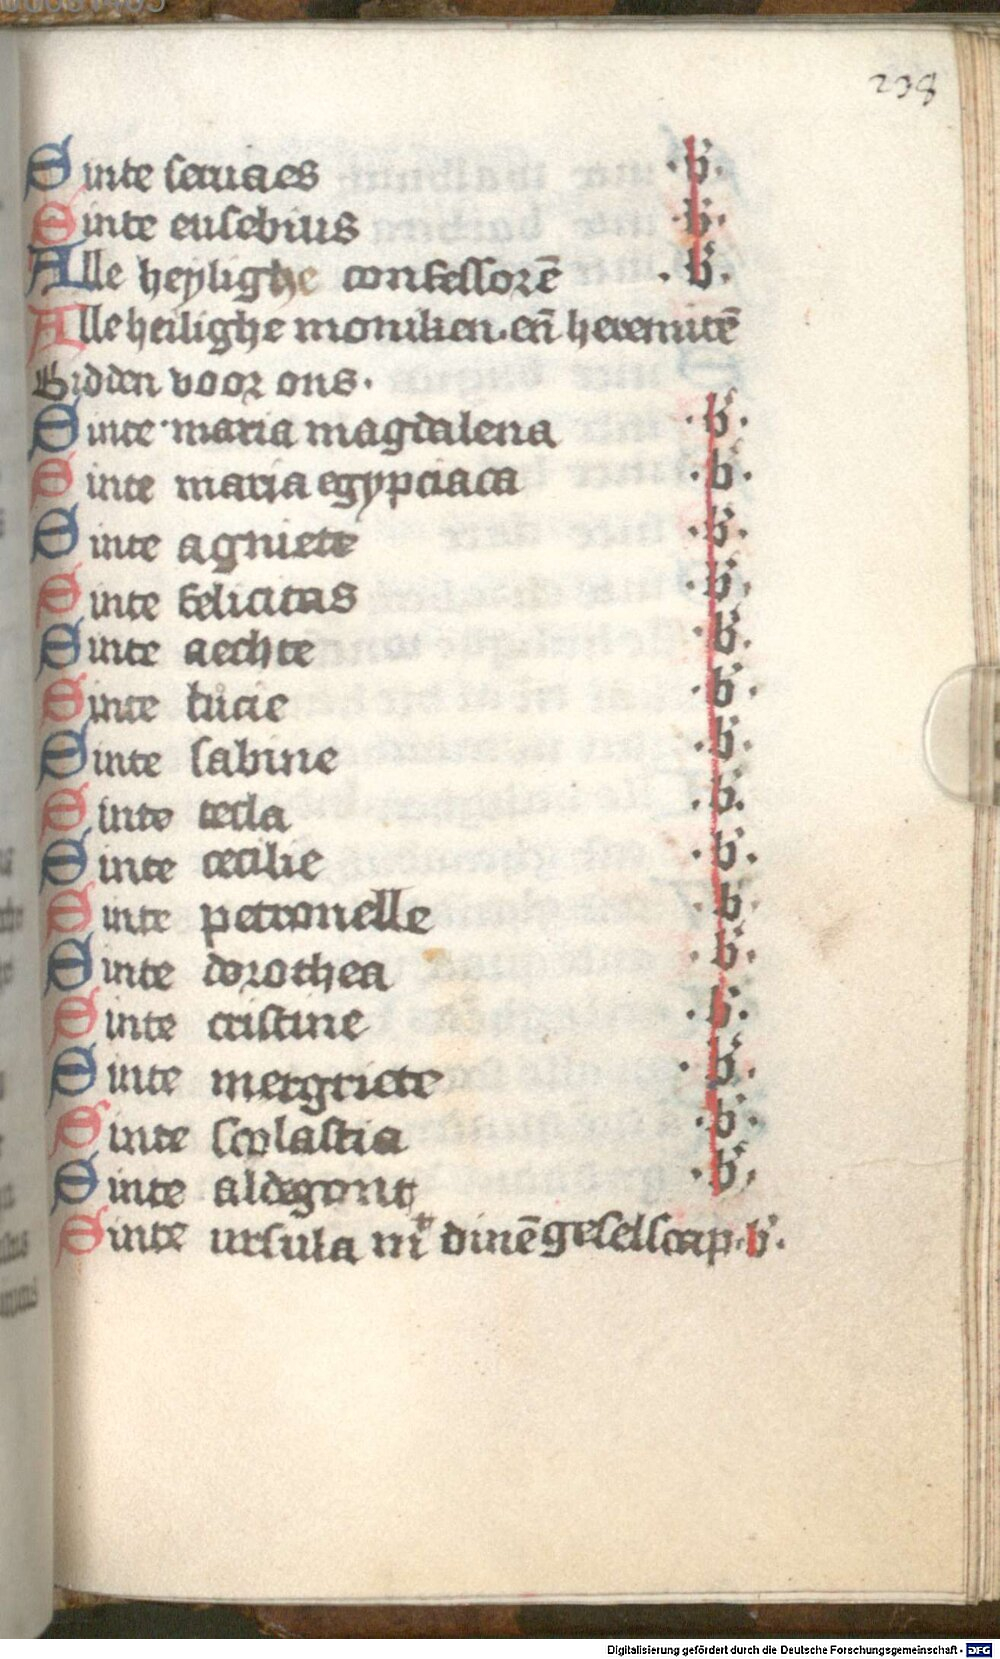 238
Sinte seruaes .b.
Sinte eusebius .b.
Alle heylighe confessorē .b.
Alle heilighe moniken. eñ heremitē
Bidden voor ons.
Sinte maria magdalena .b.
Sinte maria egypciaca .b.
Sinte agniete .b.
Sinte felicitas .b.
Sinte aechte .b.
Sinte lucie .b.
Sinte sabine .b.
Sinte tecla .b.
Sinte cecilie .b.
Sinte petronelle .b.
Sinte dorothea .b.
Sinte cristine .b.
Sinte mergriete .b.
Sinte scolastia .b.
Sinte aldegont .b.
Sinte ursula mᵗ dinē geselscap .b.
Digitalisierung gefördert durch die Deutsche Forschungsgemeinschaft - DFG